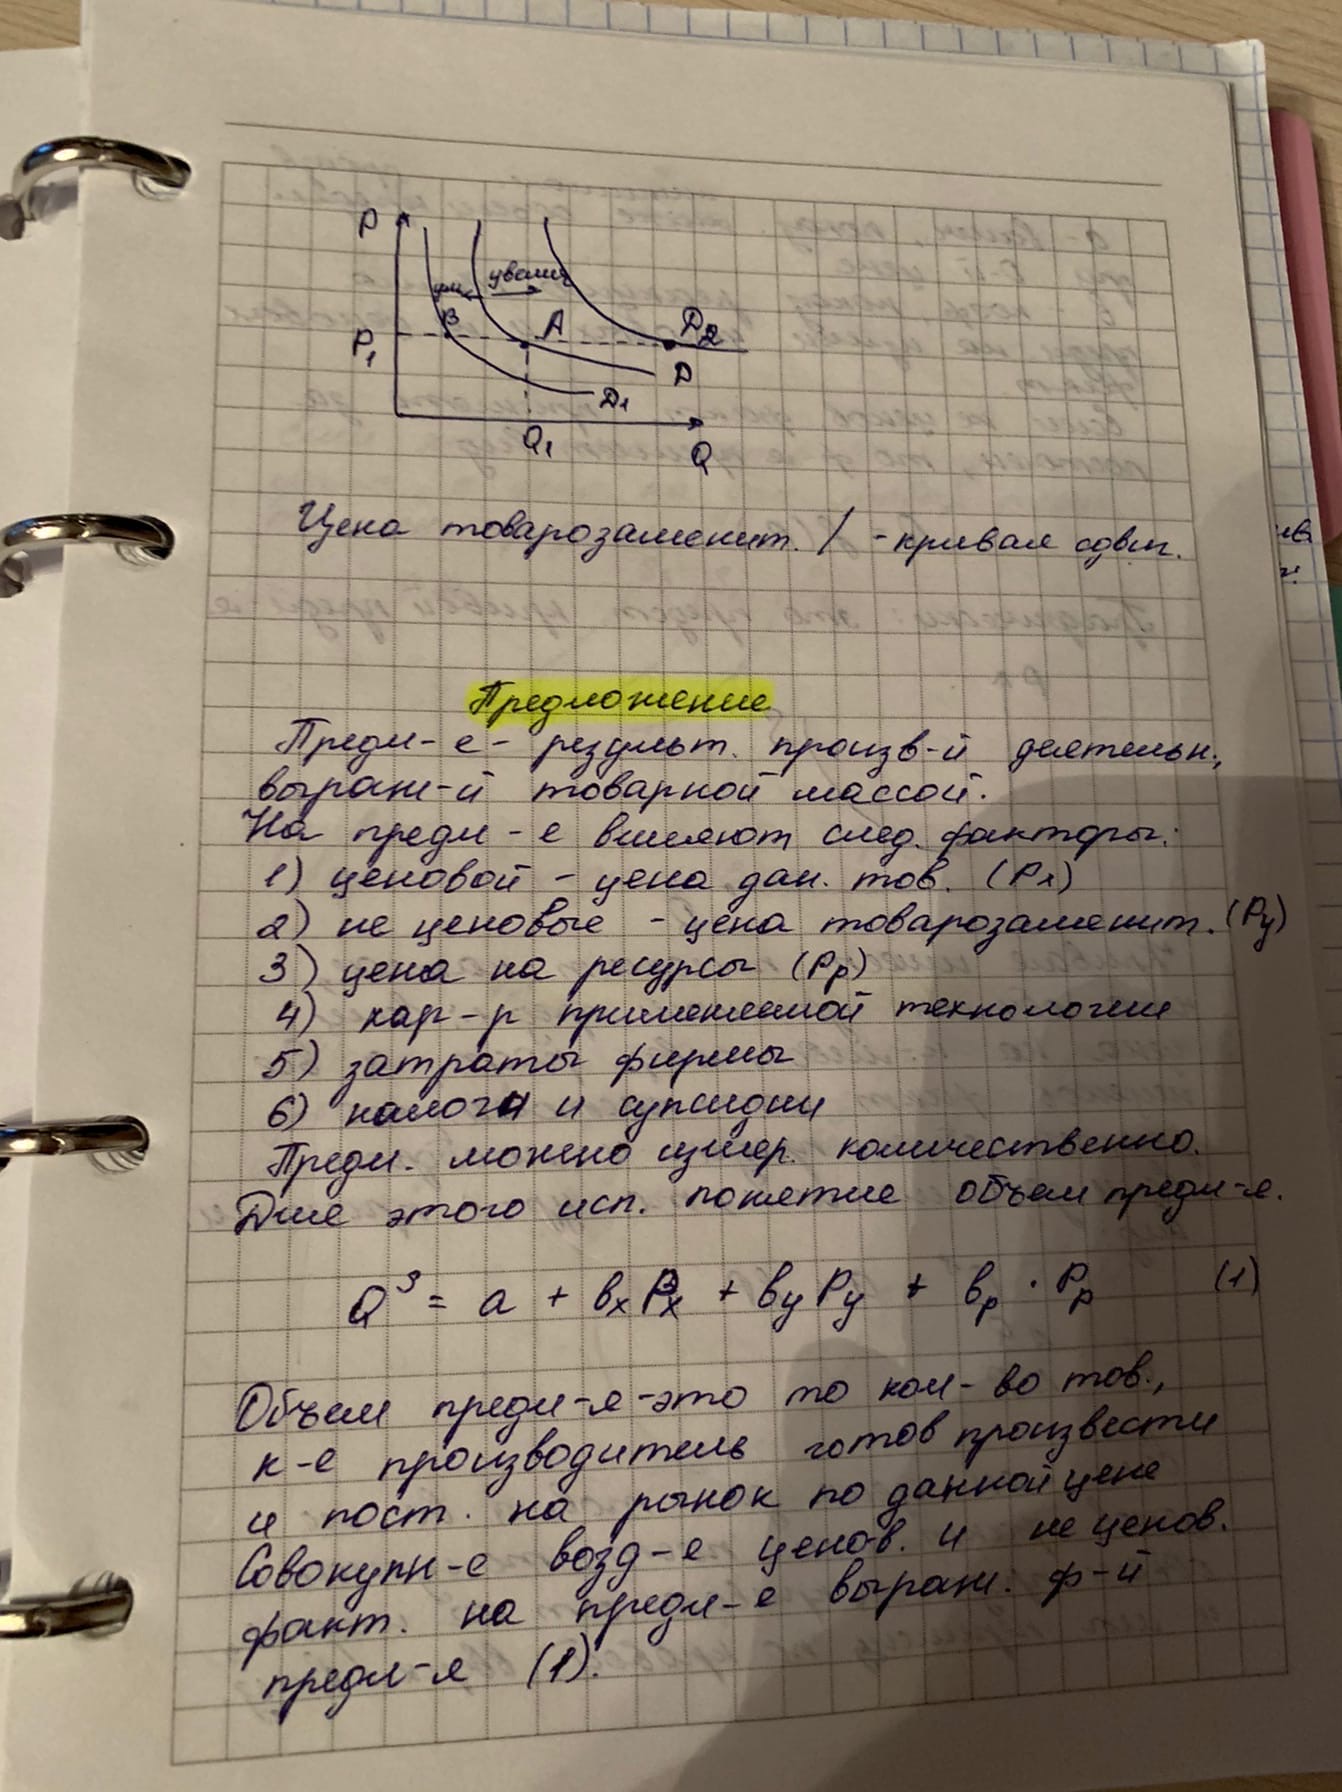 P
ум. увелич
B A D2
P1
D
D1
Q1 Q
Цена товарозаменит. / - кривая сдвиг.
Предложение
Предл-е - результ. произв-й деятельн.,
выраж-й товарной массой.
На предл-е влияют след. факторы:
1) ценовой - цена дан. тов. (Px)
2) не ценовые - цена товарозаменит. (Py)
3) цена на ресурсы (Pp)
4) хар-р применяемой технологии
5) затраты фирмы
6) налоги и супсидии
Предл. можно измер. количественно.
Для этого исп. понятие объем предл-я.
Q^s = a + вxPx + вyPy + вp · Pp (1)
Объем предл-я - это то кол-во тов.,
к-е производитель готов произвести
и пост. на рынок по данной цене
Совокупн-е возд-е ценов. и не ценов.
факт. на предл-е выраж. ф-й
предл-я (1).